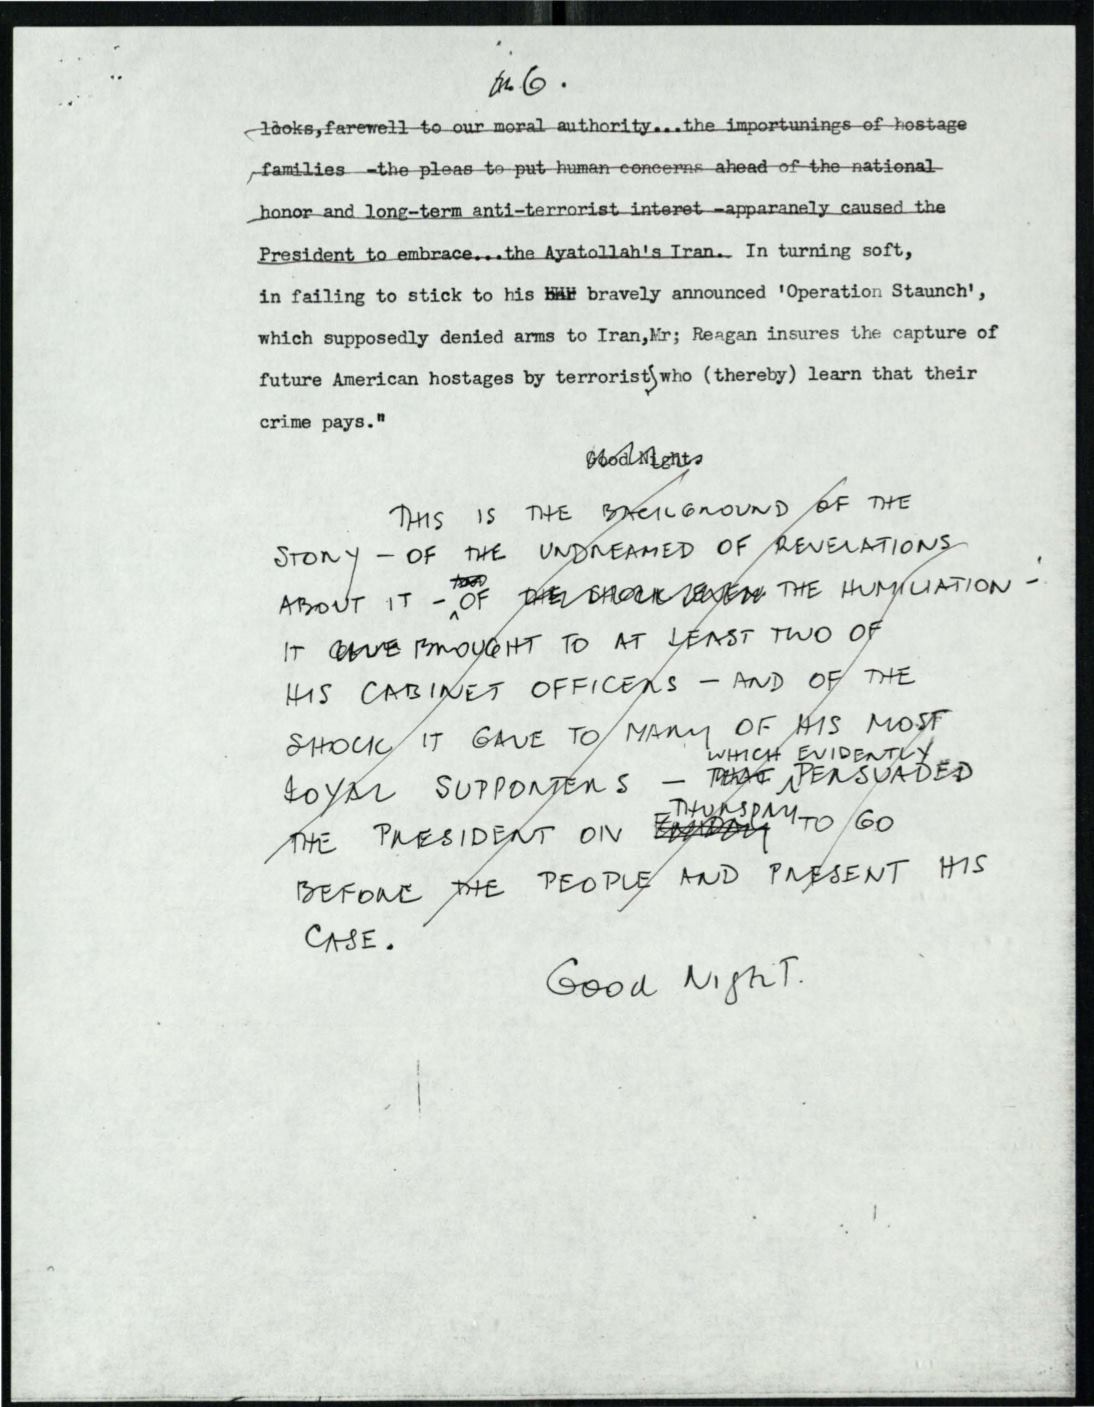 6.
looks,farewell to our moral authority...the importunings of hostage
families -the pleas to put human concerns ahead of the national
honor and long-term anti-terrorist interet -apparanely caused the
President to embrace...the Ayatollah's Iran. In turning soft,
in failing to stick to his bravely announced 'Operation Staunch',
which supposedly denied arms to Iran,Mr; Reagan insures the capture of
future American hostages by terrorists who (thereby) learn that their
crime pays."
Good Night.
THIS IS THE BACKGROUND OF THE
STORY - OF THE UNDREAMED OF REVELATIONS
ABOUT IT - OF THE SHOCK EVEN THE HUMILIATION -
IT GAVE BROUGHT TO AT LEAST TWO OF
HIS CABINET OFFICERS - AND OF THE
SHOCK IT GAVE TO MANY OF HIS MOST
WHICH EVIDENTLY
LOYAL SUPPORTERS - THAT PERSUADED
THURSDAY
THE PRESIDENT ON TO GO
BEFORE THE PEOPLE AND PRESENT HIS
CASE.
Good Night.